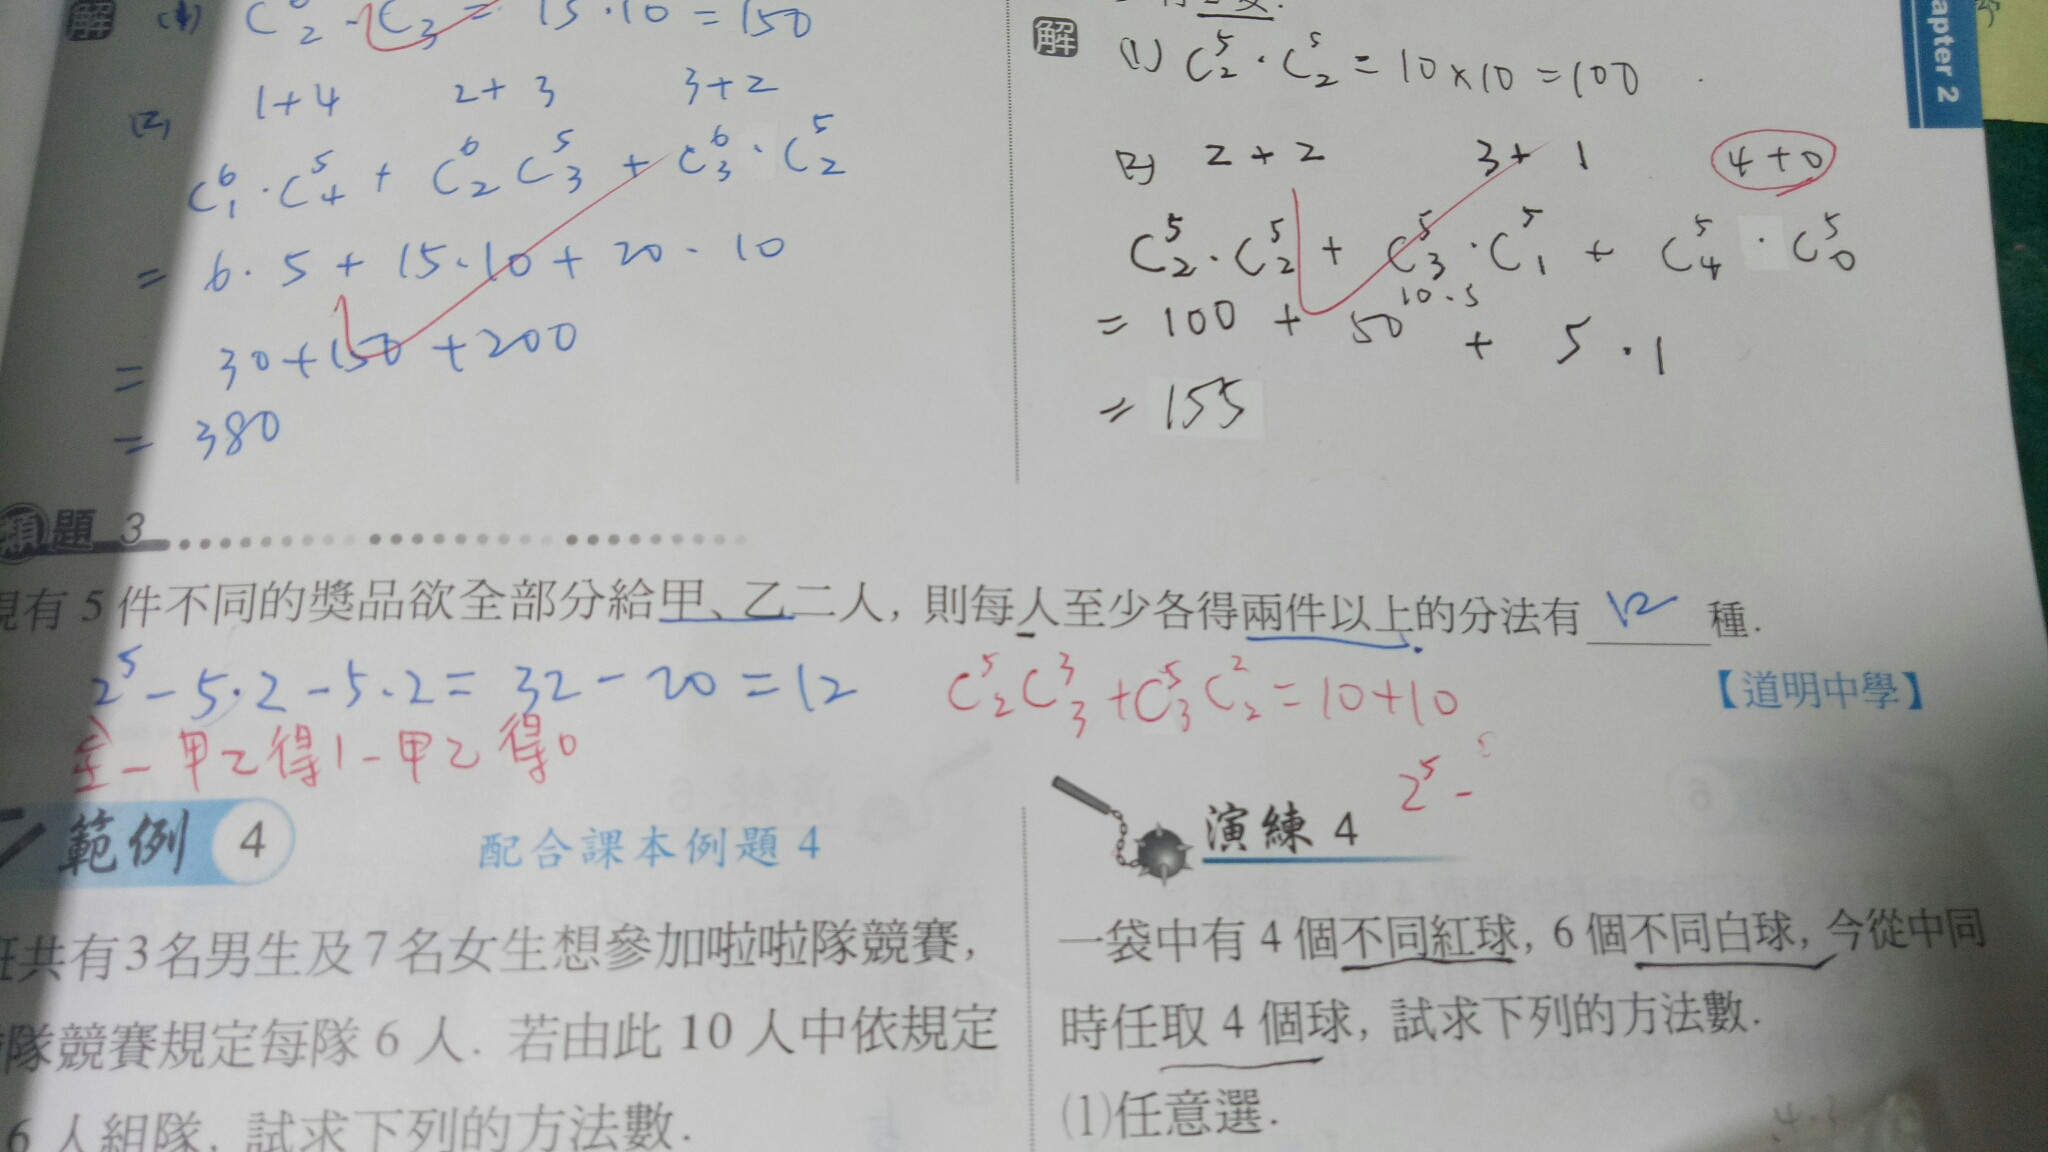 解 (1) C⁶₂ · C⁵₃ = 15·10 = 150
(2) 1+4 2+3 3+2
C⁶₁·C⁵₄ + C⁶₂ C⁵₃ + C⁶₃·C⁵₂
= 6·5 + 15·10 + 20·10
= 30+150+200
= 380
解 (1) C⁵₂·C⁵₂ = 10×10 = 100
(2) 2+2 3+1 4+0
C⁵₂·C⁵₂ + C⁵₃·C⁵₁ + C⁵₄·C⁵₀
10·5
= 100 + 50 + 5·1
= 155
apter 2
類題 3
現有 5 件不同的獎品欲全部分給甲、乙二人, 則每人至少各得兩件以上的分法有 12 種.
【道明中學】
2⁵-5·2-5·2= 32-20=12
C⁵₂C³₃+C⁵₃C²₂=10+10
全-甲乙得1-甲乙得0
2⁵-
範例 4 配合課本例題 4
班共有3名男生及7名女生想參加啦啦隊競賽,
隊競賽規定每隊 6 人. 若由此 10 人中依規定
6 人組隊, 試求下列的方法數.
演練 4
一袋中有 4 個不同紅球, 6 個不同白球, 今從中同
時任取 4 個球, 試求下列的方法數.
(1)任意選.